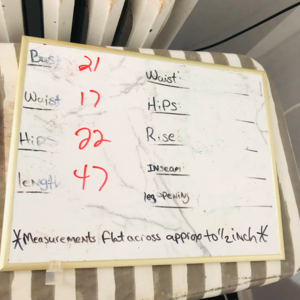 Bust 21
Waist 17
Hip 22
length 47
Waist
Hips
Rise
Inseam
leg opening
*Measurements flat across approx to 1/2 inch*